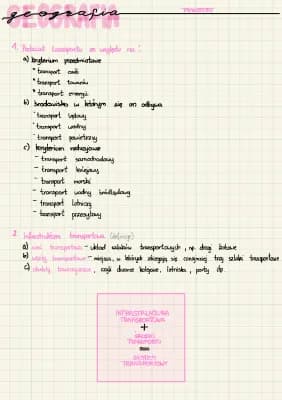 GEOGRAFIA
geografia
TRANSPORT
1. Podział transportu ze względu na :
a) kryterium przedmiotowe
* transport osób
* transport towarów
* transport energii
b) środowisko w którym się on odbywa
* transport lądowy
* transport wodny
* transport powietrzny
c) kryterium rodzajowe
- transport samochodowy
- transport kolejowy
- transport morski
- transport wodny śródlądowy
- transport lotniczy
- transport przesyłowy
2. Infrastruktura transportowa (definicja)
a) sieć transportowa - układ szlaków transportowych, np. drogi kołowe
b) węzły transportowe - miejsca, w których zbiegają się co najmniej trzy szlaki transportowe
c) obiekty towarzyszące, czyli dworce kolejowe, lotniska, porty itp.
INFRASTRUKTURA
TRANSPORTOWA
+
ŚRODKI
TRANSPORTU
=
SYSTEM
TRANSPORTOWY